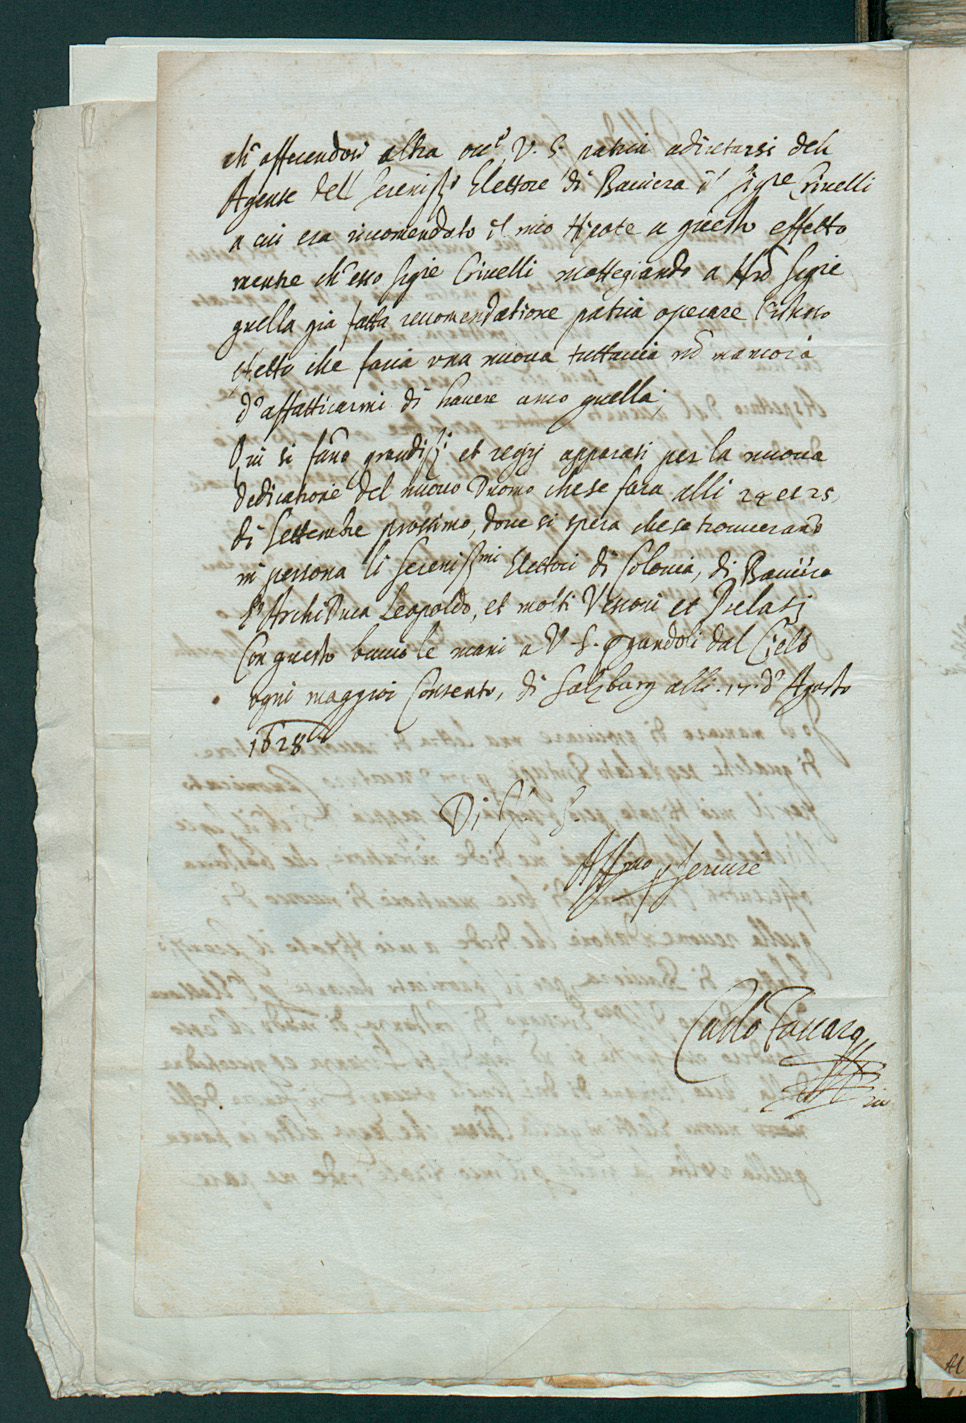 ch' offerendosi altra occ.e V. S. potria adiutarsi del
Agente dell Sereniss.o Elettore di Baviera il Sig.re Crivelli
a cui era ricomendato il mio Nipote a questo effetto,
mentre ch' esso Sig.re Crivelli mottegiando a
quella già fatta recomendatione potria operare
effetto che facia una nuova tuttavia nō mancorà
d'affatticarmi di havere anco quella.
Qui si fano grandiss.i et regij apparati per la nuova
dedicatione del nuovo Duomo che se fara alli 24 et 25,
di Settembre prossimo, dove si spera che se troverano
in persona li Serenissimi Elettori di Colonia, di Baviera
l'Archi Duca Leopoldo, et molti Vescovi et Prelati
Con questo baccio le mani a V. S. pgandoli dal Cielo
ogni maggior Contento, di Salzburg alli. 17. d'Agosto
1628
Di V. S.
Aff.mo p servire
Carlo